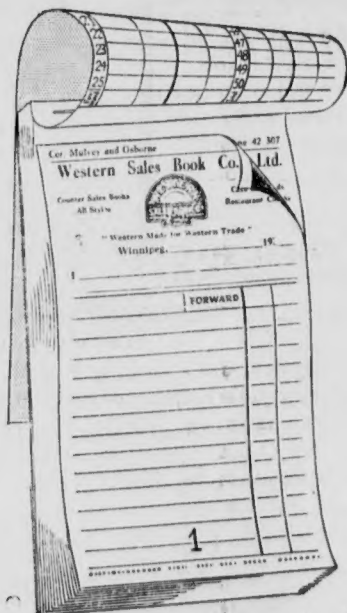 23
24
25
47
48
49
50
Cor. Mulvey and Osborne ne 42 307
Western Sales Book Co. Ltd.
Counter Sales Books
All Styles
Restaurant
"Western Made for Western Trade"
Winnipeg, 19
FORWARD
1